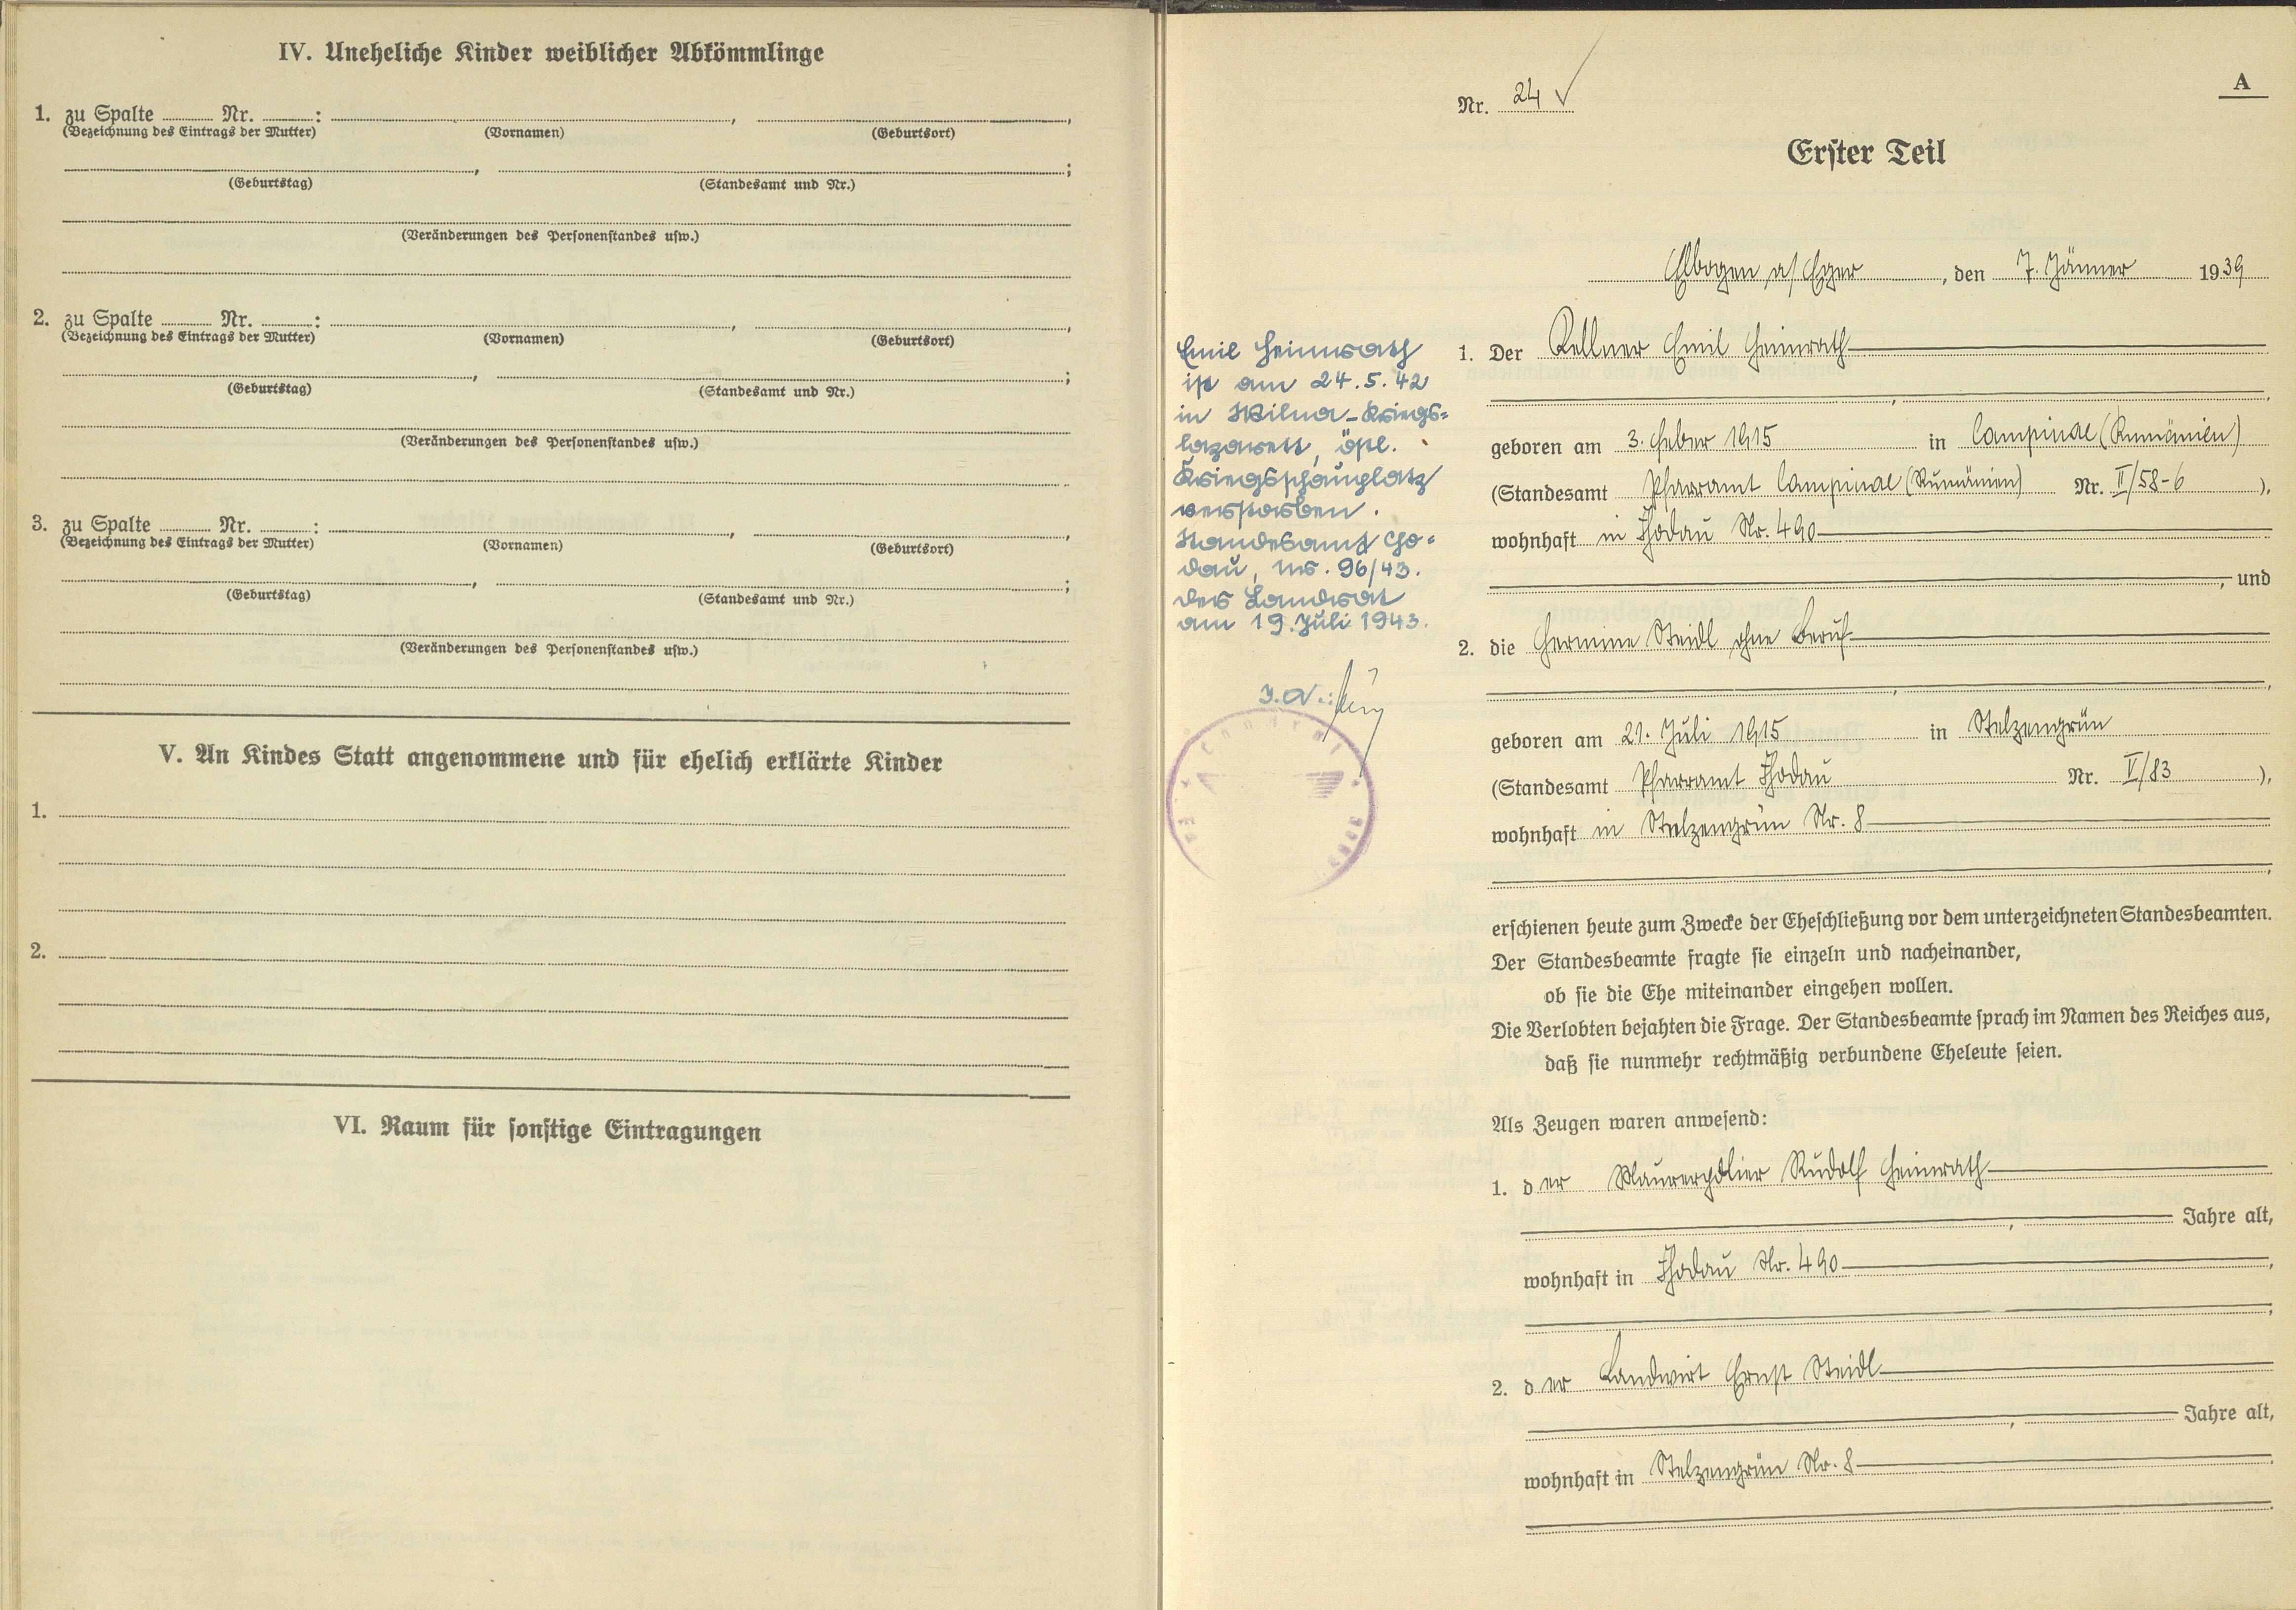 IV. Uneheliche Kinder weiblicher Abkömmlinge
1. zu Spalte ........ Nr. ........:
(Bezeichnung des Eintrags der Mutter) (Vornamen) (Geburtsort)
(Geburtstag) (Standesamt und Nr.)
(Veränderungen des Personenstandes usw.)
2. zu Spalte ........ Nr. ........:
(Bezeichnung des Eintrags der Mutter) (Vornamen) (Geburtsort)
(Geburtstag) (Standesamt und Nr.)
(Veränderungen des Personenstandes usw.)
3. zu Spalte ........ Nr. ........:
(Bezeichnung des Eintrags der Mutter) (Vornamen) (Geburtsort)
(Geburtstag) (Standesamt und Nr.)
(Veränderungen des Personenstandes usw.)
V. An Kindes Statt angenommene und für ehelich erklärte Kinder
1.
2.
VI. Raum für sonstige Eintragungen
A
Nr. 24 ✓
Erster Teil
Elbogen a/Eger, den 7. Jänner 1939
Emil Heimrath
ist am 24.5.42
in Wilna-Kriegs=
lazarett, östl.
Kriegsschauplatz
verstorben.
Standesamt Cho=
dau, Nr. 96/43.
Der Landrat
am 19. Juli 1943.
I.A.:
Landrat
1. Der Kellner Emil Heimrath
geboren am 3. Feber 1915 in Campinae (Rumänien)
(Standesamt Pfarramt Campinae (Rumänien) Nr. II/58-6),
wohnhaft in Chodau Nr. 490
, und
2. die Hermine Steidl ohne Beruf
geboren am 21. Juli 1915 in Stelzengrün
(Standesamt Pfarramt Chodau Nr. V/83),
wohnhaft in Stelzengrün Nr. 8
erschienen heute zum Zwecke der Eheschließung vor dem unterzeichneten Standesbeamten.
Der Standesbeamte fragte sie einzeln und nacheinander,
ob sie die Ehe miteinander eingehen wollen.
Die Verlobten bejahten die Frage. Der Standesbeamte sprach im Namen des Reiches aus,
daß sie nunmehr rechtmäßig verbundene Eheleute seien.
Als Zeugen waren anwesend:
1. der Maurerpolier Rudolf Heimrath
Jahre alt,
wohnhaft in Chodau Nr. 490
2. der Landwirt Ernst Steidl
Jahre alt,
wohnhaft in Stelzengrün Nr. 8